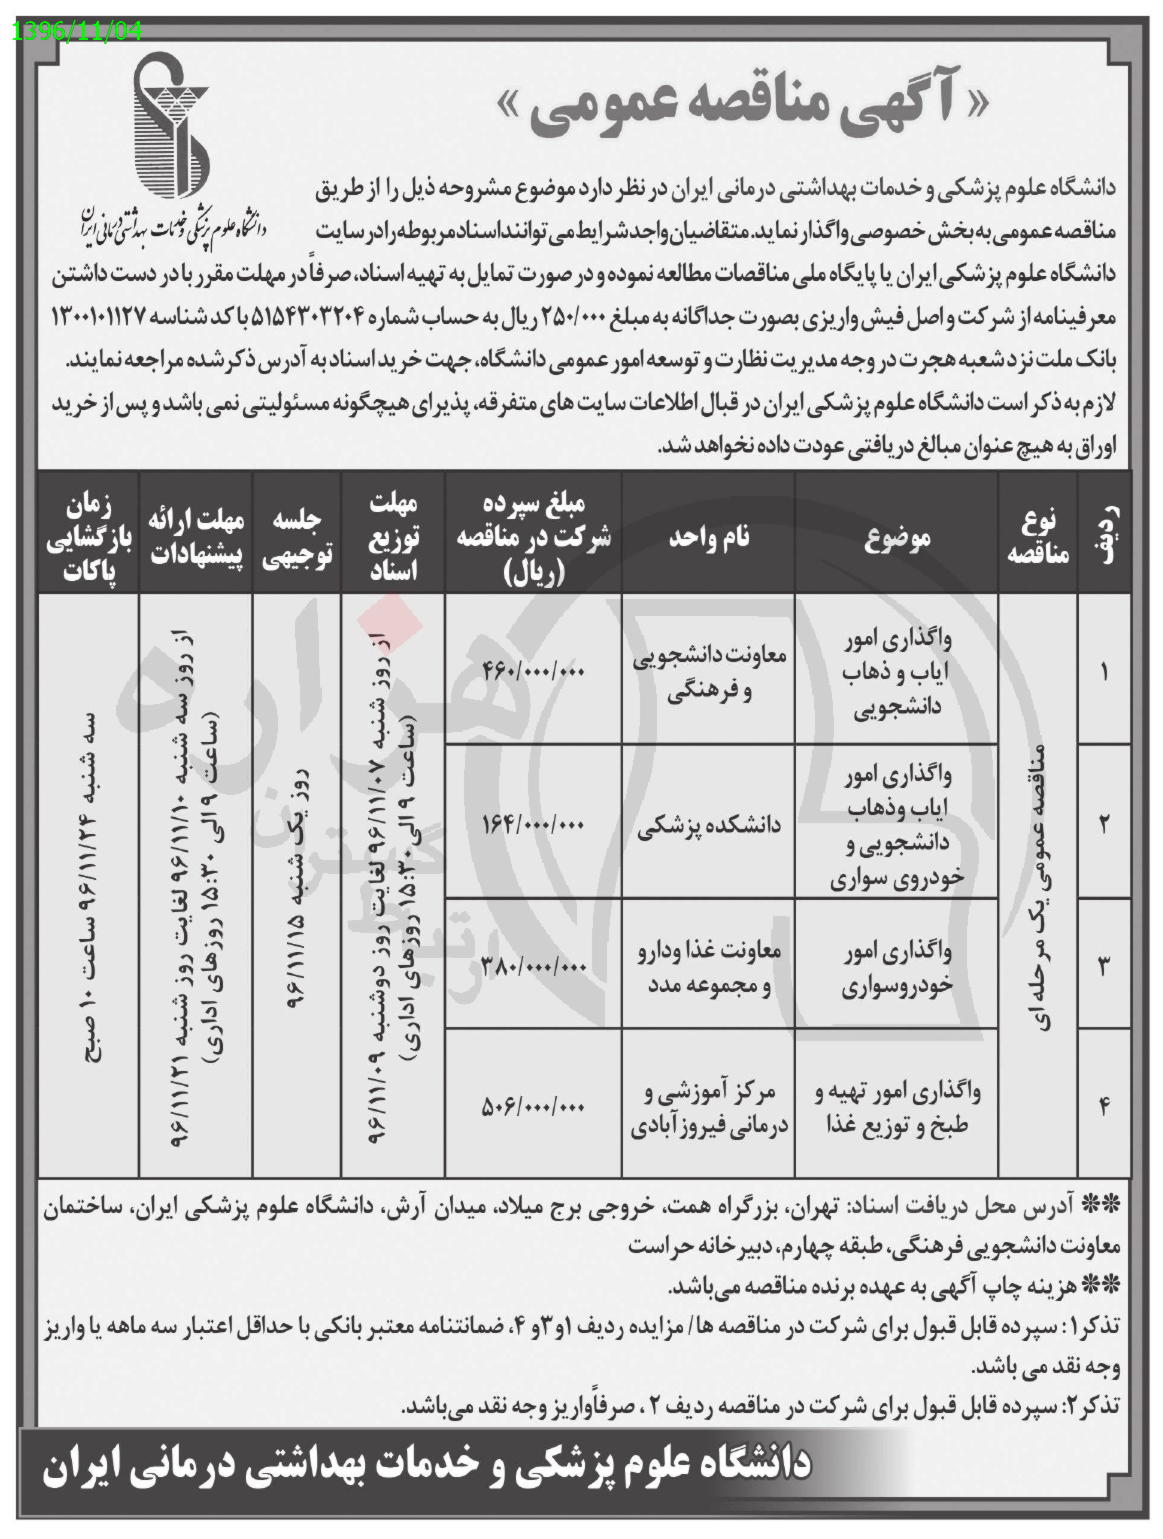 1396/11/04
« آگهی مناقصه عمومی »
دانشگاه علوم پزشکی و خدمات بهداشتی درمانی ایران
دانشگاه علوم پزشکی و خدمات بهداشتی درمانی ایران در نظر دارد موضوع مشروحه ذیل را از طریق
مناقصه عمومی به بخش خصوصی واگذار نماید. متقاضیان واجد شرایط می توانند اسناد مربوطه را در سایت
دانشگاه علوم پزشکی ایران یا پایگاه ملی مناقصات مطالعه نموده و در صورت تمایل به تهیه اسناد، صرفاً در مهلت مقرر با در دست داشتن
معرفینامه از شرکت و اصل فیش واریزی بصورت جداگانه به مبلغ ۲۵۰/۰۰۰ ریال به حساب شماره ۵۱۵۴۳۰۳۲۰۴ با کد شناسه ۱۳۰۰۱۰۱۱۲۷
بانک ملت نزد شعبه هجرت در وجه مدیریت نظارت و توسعه امور عمومی دانشگاه، جهت خرید اسناد به آدرس ذکر شده مراجعه نمایند.
لازم به ذکر است دانشگاه علوم پزشکی ایران در قبال اطلاعات سایت های متفرقه، پذیرای هیچگونه مسئولیتی نمی باشد و پس از خرید
اوراق به هیچ عنوان مبالغ دریافتی عودت داده نخواهد شد.
ردیف
نوع
مناقصه
موضوع
نام واحد
مبلغ سپرده
شرکت در مناقصه
(ریال)
مهلت
توزیع
اسناد
جلسه
توجیهی
مهلت ارائه
پیشنهادات
زمان
بازگشایی
پاکات
۱
مناقصه عمومی یک مرحله ای
واگذاری امور
ایاب و ذهاب
دانشجویی
معاونت دانشجویی
و فرهنگی
۴۶۰/۰۰۰/۰۰۰
از روز شنبه ۹۶/۱۱/۰۷ لغایت روز دوشنبه ۹۶/۱۱/۰۹
(ساعت ۹ الی ۱۵:۳۰ روزهای اداری)
روز یک شنبه ۹۶/۱۱/۱۵
از روز سه شنبه ۹۶/۱۱/۱۰ لغایت روز شنبه ۹۶/۱۱/۲۱
(ساعت ۹ الی ۱۵:۳۰ روزهای اداری)
سه شنبه ۹۶/۱۱/۲۴ ساعت ۱۰ صبح
۲
واگذاری امور
ایاب وذهاب
دانشجویی و
خودروی سواری
دانشکده پزشکی
۱۶۴/۰۰۰/۰۰۰
۳
واگذاری امور
خودروسواری
معاونت غذا ودارو
و مجموعه مدد
۳۸۰/۰۰۰/۰۰۰
۴
واگذاری امور تهیه و
طبخ و توزیع غذا
مرکز آموزشی و
درمانی فیروزآبادی
۵۰۶/۰۰۰/۰۰۰
هزاره
گستران
ارتباط
** آدرس محل دریافت اسناد: تهران، بزرگراه همت، خروجی برج میلاد، میدان آرش، دانشگاه علوم پزشکی ایران، ساختمان
معاونت دانشجویی فرهنگی، طبقه چهارم، دبیرخانه حراست
** هزینه چاپ آگهی به عهده برنده مناقصه می‌باشد.
تذکر۱: سپرده قابل قبول برای شرکت در مناقصه ها/ مزایده ردیف ۱و۳و ۴، ضمانتنامه معتبر بانکی با حداقل اعتبار سه ماهه یا واریز
وجه نقد می باشد.
تذکر۲: سپرده قابل قبول برای شرکت در مناقصه ردیف ۲ ، صرفاًواریز وجه نقد می‌باشد.
دانشگاه علوم پزشکی و خدمات بهداشتی درمانی ایران